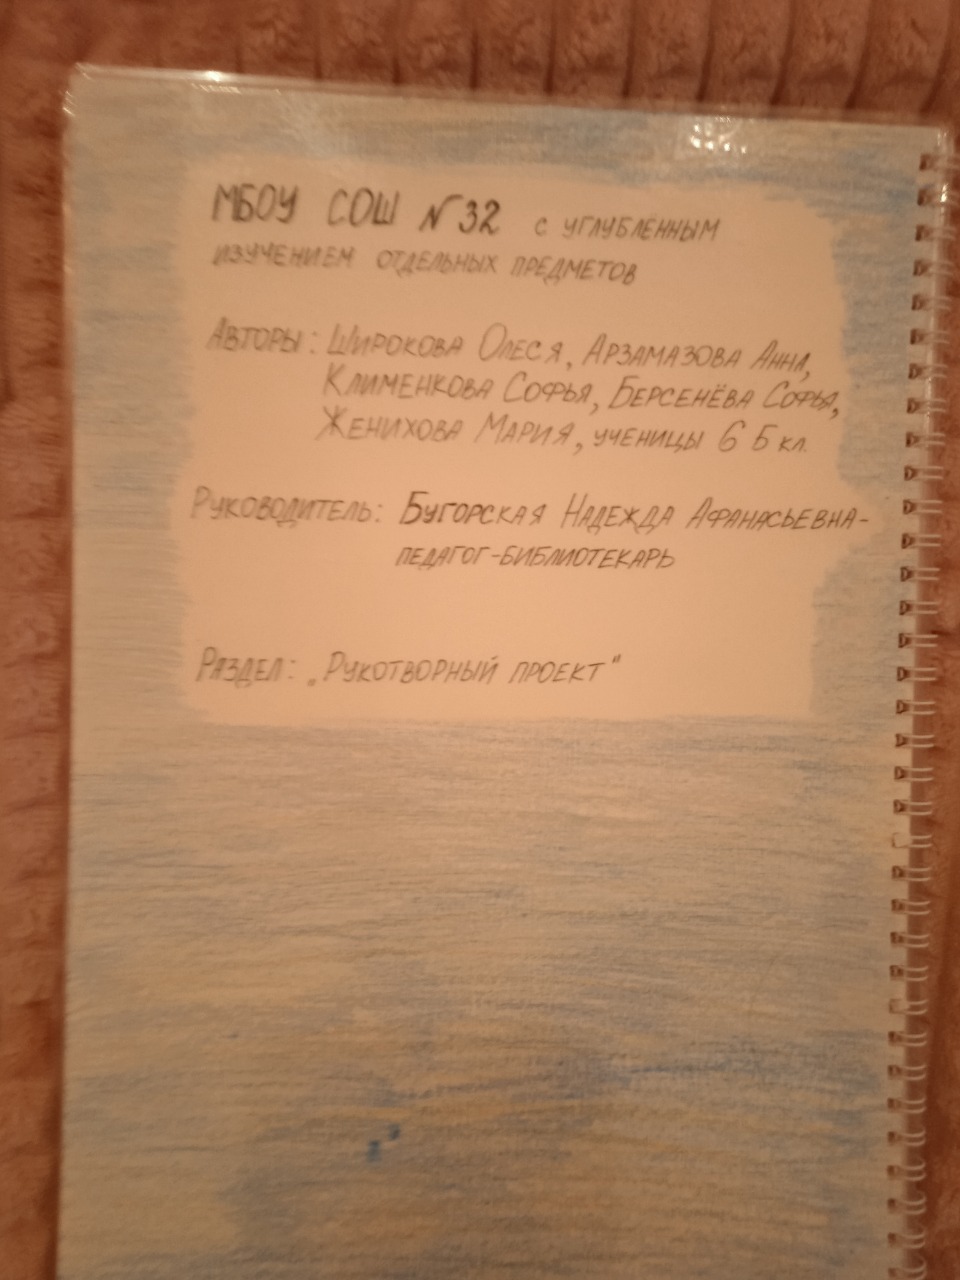 МБОУ СОШ №32 с углублённым
изучением отдельных предметов
Авторы: Широкова Олеся, Арзамазова Анна,
Клименкова Софья, Берсенёва Софья,
Женихова Мария, ученицы 6 Б кл.
Руководитель: Бугорская Надежда Афанасьевна-
педагог-библиотекарь
Раздел: „Рукотворный проект"